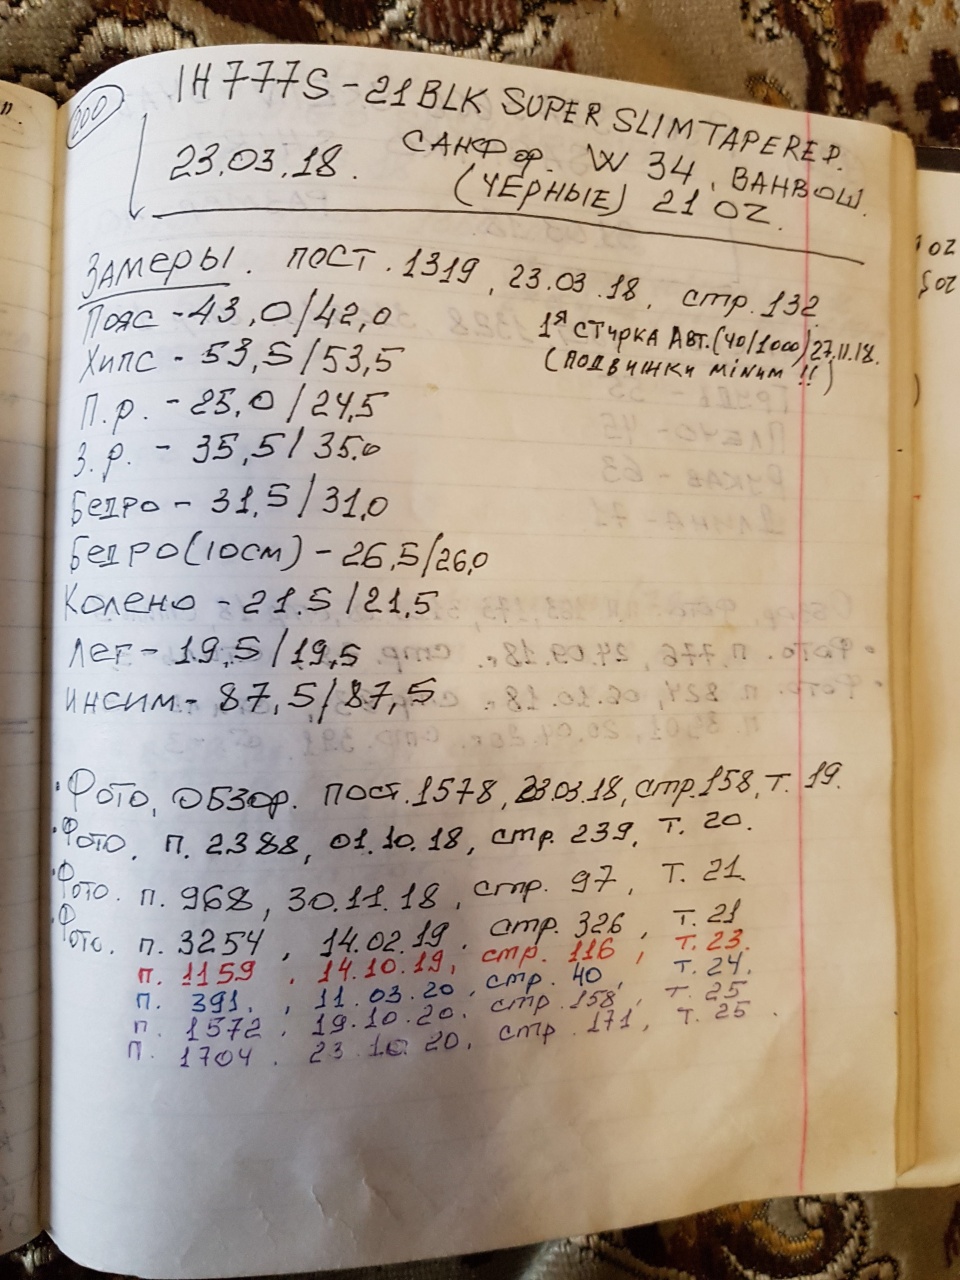 200
IH777S-21BLK SUPER SLIM TAPERED.
23.03.18. САНФор. W 34, ВАНВОШ.
(ЧЕРНЫЕ) 21 OZ.
ЗАМЕРЫ. ПОСТ. 1319, 23.03.18, стр. 132
Пояс - 43,0/42,0
1я СТИРКА АВТ. (40/1000) 27.11.18.
Хипс - 53,5/53,5
(ПОДВИЖКИ МINИМ !!)
П.р. - 25,0/24,5
З.р. - 35,5/35.0
БЕДРО - 31,5/31,0
БЕДРО (10см) - 26,5/26,0
Колено - 21.5/21,5
ЛЕГ - 19,5/19,5
ИНСИМ - 87,5/87,5
• Фото, ОБЗОР. ПОСТ. 1578, 23.03.18, стр. 158, Т. 19.
• Фото, П. 2388, 01.10.18, стр. 239, Т. 20.
• Фото. п. 968, 30.11.18, стр. 97, Т. 21
• Фото. п. 3254, 14.02.19, стр. 326, Т. 21
п. 1159, 14.10.19, стр. 116, Т. 23.
п. 391, 11.03.20, стр. 40, Т. 24.
п. 1572, 19.10.20. стр. 158, Т. 25
п. 1704. 23.10.20, стр. 171, Т. 25.